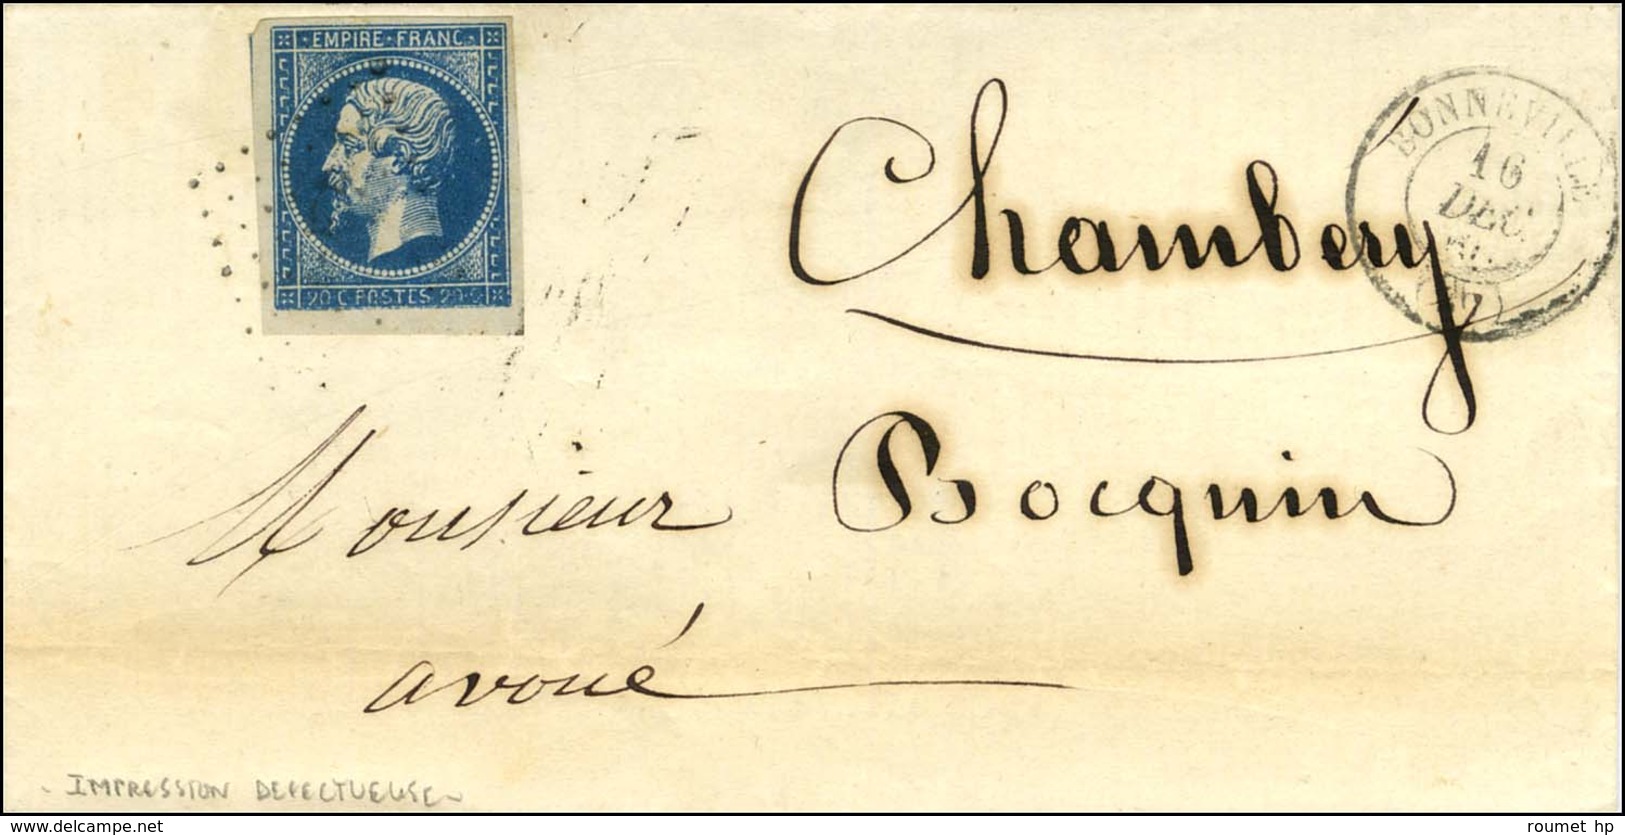 EMPIRE · FRANC ·
20 C POSTES 20 C
BONNEVILLE
16
DEC.
Chambéry
Monsieur Bocquin
avoué
IMPRESSION DEFECTUEUSE
www.delcampe.net
roumet hp